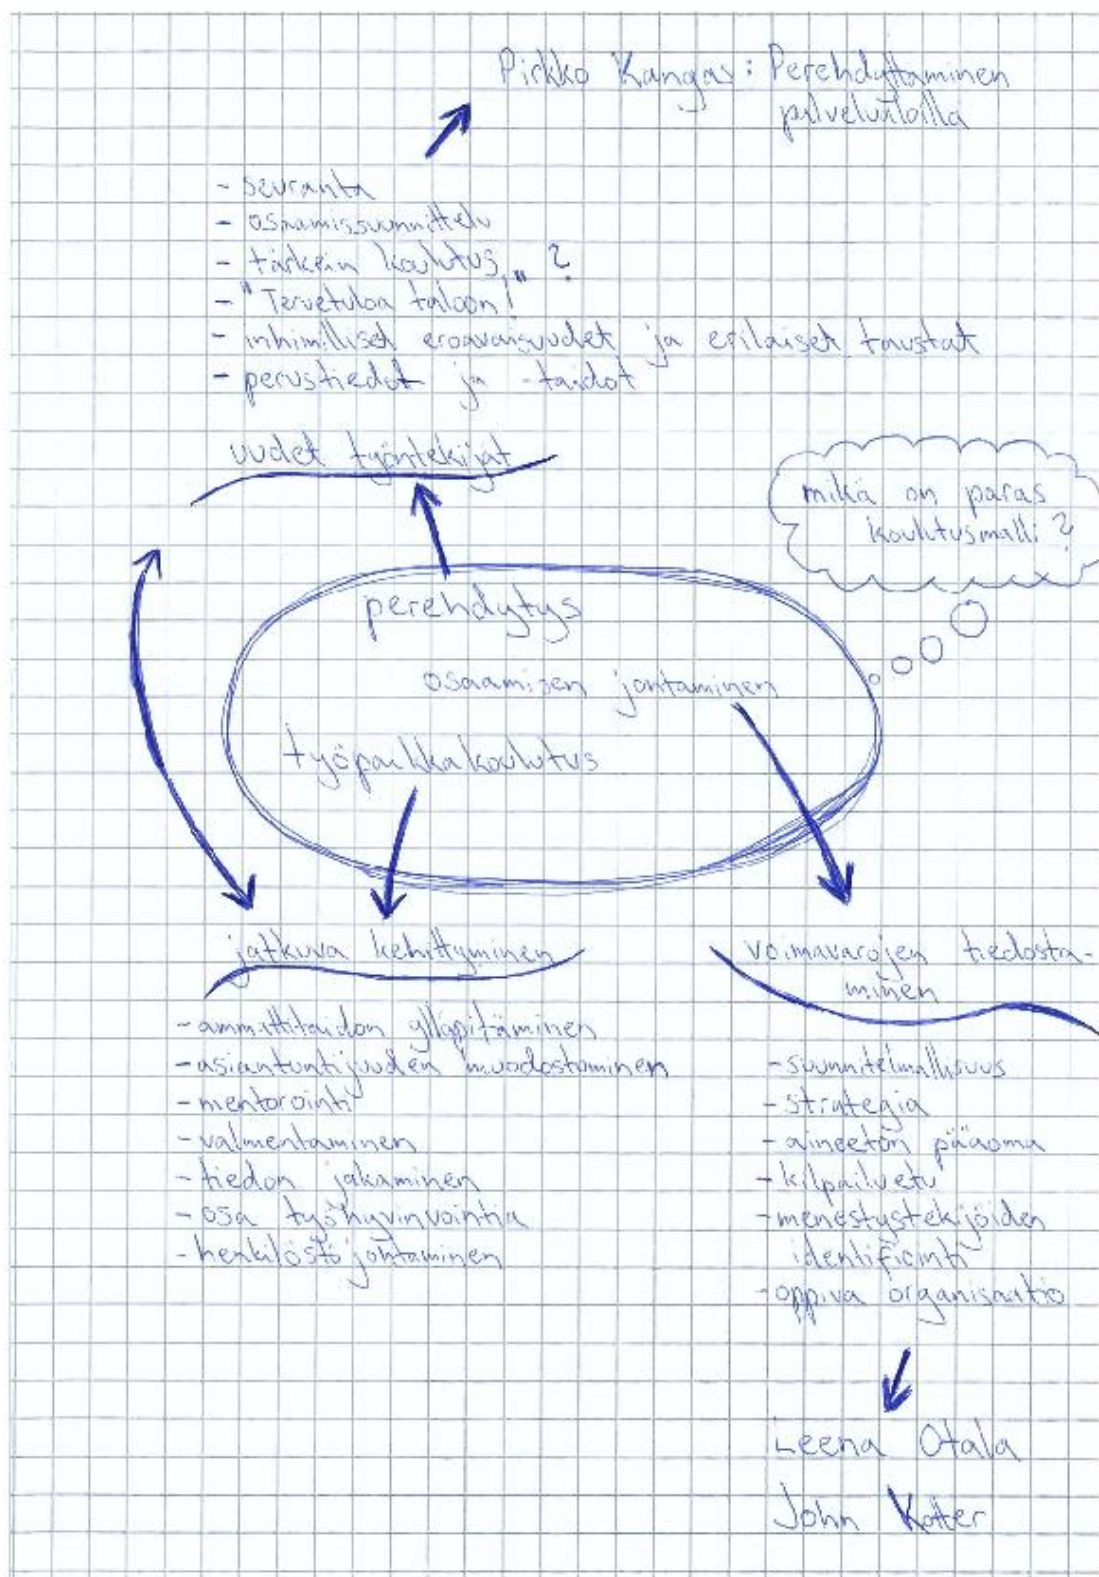 Pirkko Kangas: Perehdyttäminen
palvelualoilla
- seuranta
- osaamissuunnittelu
- tärkein koulutus ?
- "Tervetuloa taloon!"
- inhimilliset eroavaisuudet ja erilaiset taustat
- perustiedot ja -taidot
uudet työntekijät
mikä on paras
koulutusmalli?
perehdytys
osaamisen johtaminen
työpaikkakoulutus
jatkuva kehittyminen
- ammattitaidon ylläpitäminen
- asiantuntijuuden muodostaminen
- mentorointi
- valmentaminen
- tiedon jakaminen
- osa työhyvinvointia
- henkilöstöjohtaminen
voimavarojen tiedosta-
minen
- suunnitelmallisuus
- strategia
- aineeton pääoma
- kilpailuetu
- menestystekijöiden
identifiointi
- oppiva organisaatio
Leena Otala
John Kotter